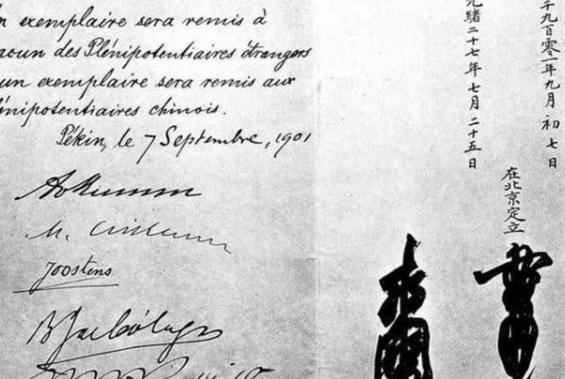 n exemplaire sera remis à
acun des Plénipotentiaires étrangers
un exemplaire sera remis aux
énipotentiaires chinois.
Pékin, le 7 Septembre, 1901
Joostens
B. J. de Cólogan
千九百零一年九月初七日
在北京定立
光緒二十七年七月二十五日